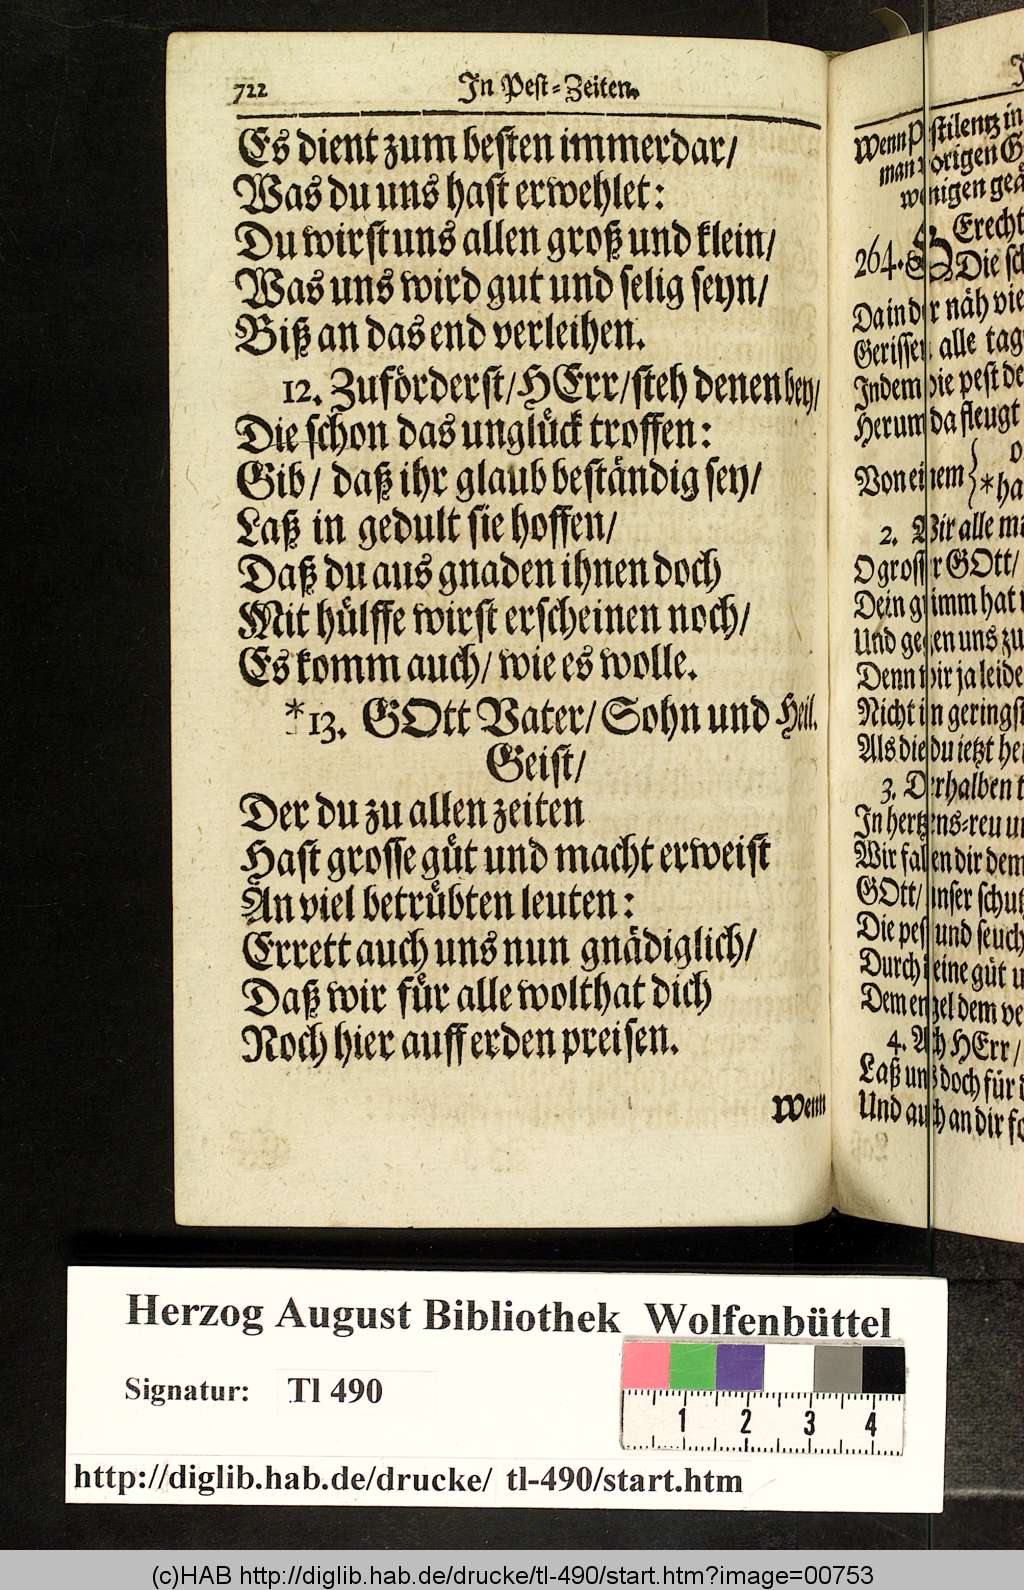 722 In Pest-Zeiten.
Es dient zum besten immerdar/
Was du uns hast erwehlet:
Du wirst uns allen groß und klein/
Was uns wird gut und selig seyn/
Biß an das end verleihen.
12. Zuförderst/ HErr/ steh denen bey/
Die schon das unglück troffen:
Gib/ daß ihr glaub beständig sey/
Laß in gedult sie hoffen/
Daß du aus gnaden ihnen doch
Mit hülffe wirst erscheinen noch/
Es komm auch/ wie es wolle.
*13. GOtt Vater/ Sohn und Heil.
Geist/
Der du zu allen zeiten
Hast grosse güt und macht erweist
An viel betrübten leuten:
Errett auch uns nun gnädiglich/
Daß wir für alle wolthat dich
Noch hier auff erden preisen.
Wenn
Wenn Pestilentz in
man vorigen
wenigen
264.
Die
Da in der näh
Gerissen alle
Indem die pest
Herum da fleugt
Von einem
2. Wir alle
O grosser GOtt/
Dein grimm hat
Und gegen uns zu
Denn wir ja
Nicht in
Als die du ietzt
3. Derhalben
In hertzens-reu
Wir fallen dir dem
GOtt/ unser
Die pest und
Durch deine güt
Dem engel dem
4. Ach HErr/
Laß uns doch für
Und auch an dir
Herzog August Bibliothek Wolfenbüttel
Signatur: Tl 490
1 2 3 4
http://diglib.hab.de/drucke/ tl-490/start.htm
(c)HAB http://diglib.hab.de/drucke/tl-490/start.htm?image=00753